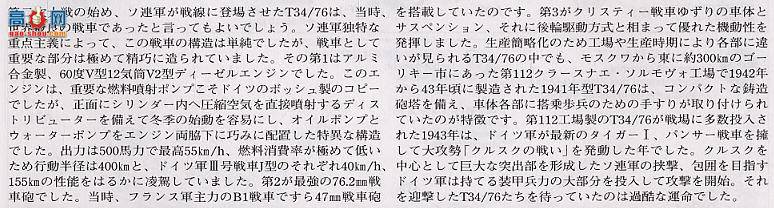 戦の始め、ソ連軍が戦線に登場させたT34/76は、当時、
の戦車であったと言ってもよいでしょう。ソ連軍独特な
重点主義によって、この戦車の構造は単純でしたが、戦車として
重要な部分は極めて精巧に造られていました。その第1はアルミ
合金製、60度V型12気筒V2型ディーゼルエンジンでした。このエ
ンジンは、重要な燃料噴射ポンプこそドイツのボッシュ製のコピー
でしたが、正面にシリンダー内へ圧縮空気を直接噴射するディス
トリビューターを備えて冬季の始動を容易にし、オイルポンプと
ウォーターポンプをエンジン両脇下に巧みに配置した特異な構造
でした。出力は500馬力で最高55km/h、燃料消費率が極めて低い
ため行動半径は400kmと、ドイツ軍Ⅲ号戦車J型のそれぞれ40km/h、
155kmの性能をはるかに凌駕していました。第2が最強の76.2mm戦
車砲でした。当時、フランス軍主力のB1戦車ですら47mm戦車砲
を搭載していたのです。第3がクリスティー戦車ゆずりの車体と
サスペンション、それに後輪駆動方式と相まって優れた機動性を
発揮しました。生産簡略化のため工場や生産時期により各部に違
いが見られるT34/76の中でも、モスクワから東に約300kmのゴー
リキー市にあった第112クラースナエ・ソルモヴォ工場で1942年
から43年頃に製造された1941年型T34/76は、コンパクトな鋳造
砲塔を備え、車体各部に搭乗歩兵のための手すりが取り付けられ
ていたのが特徴です。第112工場製のT34/76が戦場に多数投入さ
れた1943年は、ドイツ軍が最新のタイガーⅠ、パンサー戦車を擁
して大攻勢「クルスクの戦い」を発動した年でした。クルスクを
中心として巨大な突出部を形成したソ連軍の挟撃、包囲を目指す
ドイツ軍は持てる装甲兵力の大部分を投入して攻撃を開始。それ
を迎撃したT34/76たちを待っていたのは過酷な運命でした。